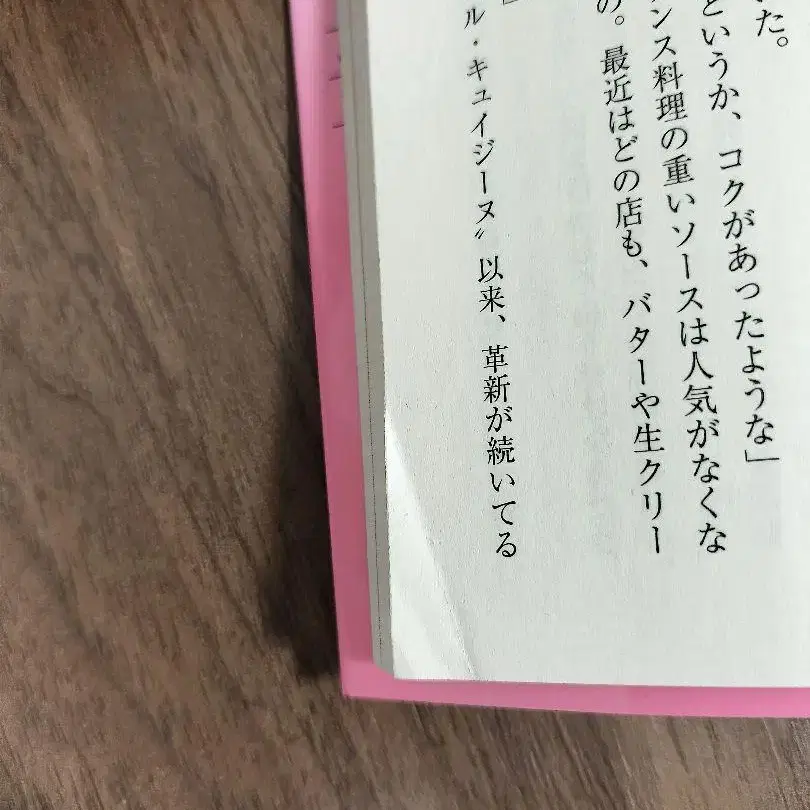 た。
というか、コクがあったような」
ンス料理の重いソースは人気がなくな
の。最近はどの店も、バターや生クリー
」
ル・キュイジーヌ〟以来、革新が続いてる